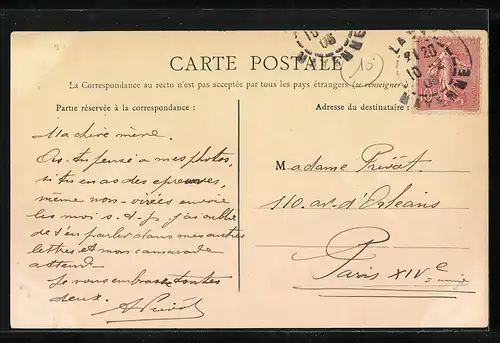 CARTE POSTALE
La Correspondance au recto n'est pas acceptée par tous les pays étrangers (se renseigner
Partie réservée à la correspondance :
Adresse du destinataire :
Ma chère mère.
As-tu pensé a mes photos,
si tu en as des épreuves,
même non-virées envoie
les moi s.t.p. j'ai oublié
de t'en parler dans mes autres
lettres et mon camarade
attend.
Je vous embrasse toutes
deux.
Madame
110 av. d'Orléans
Paris XIVe